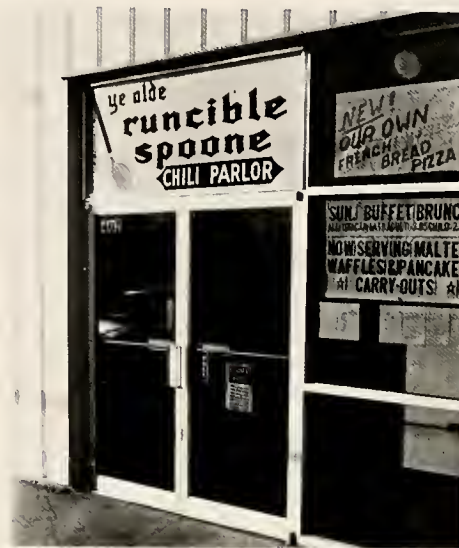 ye olde
runcible
spoone
CHILI PARLOR
NEW!
OUR OWN
FRENCH
BREAD
PIZZA
SUN. BUFFET BRUNC
NOW SERVING MALTE
WAFFLES & PANCAKE
CARRY-OUTS